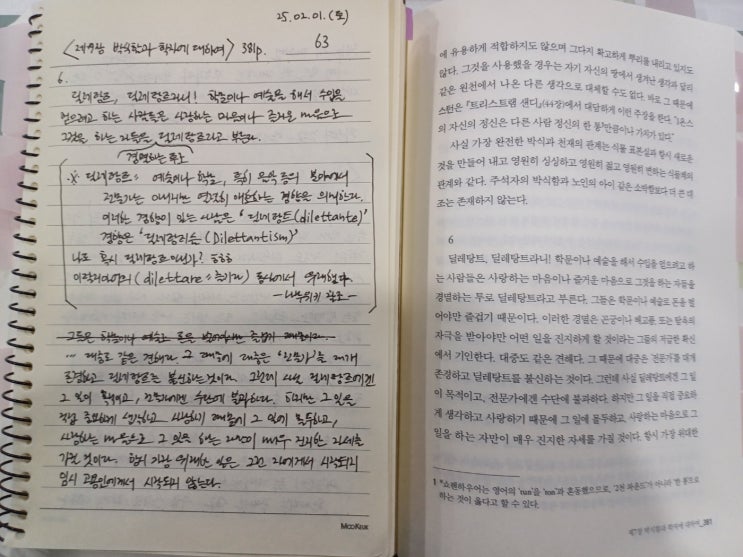 25.02.01.(토)
<제7장 박식함과 학자에 대하여> 381p.
63
6.
딜레당트, 딜레당트라니! 학문이나 예술을 해서 수입을
얻으려고 하는 사람들은 사랑하는 마음이나 즐거운 마음으로
그것을 하는 자들을 딜레당트라고 부른다.
경멸하는 투로
※ 딜레당트: 예술이나 학문, 특히 음악 등의 분야에서
전문가는 아니지만 열렬히 애호하는 경향을 의미한다.
이러한 경향이 있는 사람은 '딜레당트(dilettante)'
경향은 '딜레당티슴(Dilettantism)'
나도 혹시 딜레당트이려나? ㅎㅎㅎ
이탈리아어의 (dilettare = 즐기다) 동사에서 유래했다.
-나무위키 참조-
그들은 학문이나 예술로 돈을 벌어야만 즐겁기 때문이다.
… 대중도 같은 견해다. 그 때문에 대중은 '전문가'를 대개
존경하고 딜레당트를 불신하는 것이다. 그런데 사실 딜레당트에겐
그 일이 목적이고, 전문가에겐 수단에 불과하다. 하지만 그 일을
직접 중요하게 생각하고 사랑하기 때문에 그 일에 몰두하고,
사랑하는 마음으로 그 일을 하는 자만이 매우 진지한 자세를
가질 것이다. 항시 가장 위대한 일은 그런 자에게서 시작되지
임시 고용인에게서 시작되지 않는다.
MOOKEUK
에 유용하게 적합하지도 않으며 그다지 확고하게 뿌리를 내리고 있지도
않다. 그것을 사용했을 경우는 자기 자신의 땅에서 생겨난 생각과 달리
같은 원천에서 나온 다른 생각으로 대체할 수도 없다. 바로 그 때문에
스턴은 『트리스트럼 샌디』(4권)에서 대담하게 이런 주장을 한다. "1온스
의 자신의 정신은 다른 사람 정신의 한 통만큼이나 가치가 있다."
사실 가장 완전한 박식과 천재의 관계는 식물 표본실과 항시 새로운
것을 만들어 내고 영원히 싱싱하고 영원히 젊고 영원히 변하는 식물계의
관계와 같다. 주석자의 박식함과 노인의 아이 같은 소박함보다 더 큰 대
조는 존재하지 않는다.
6
딜레당트, 딜레당트라니! 학문이나 예술을 해서 수입을 얻으려고 하
는 사람들은 사랑하는 마음이나 즐거운 마음으로 그것을 하는 자들을
경멸하는 투로 딜레당트라고 부른다. 그들은 학문이나 예술로 돈을 벌
어야만 즐겁기 때문이다. 이러한 경멸은 곤궁이나 배고픔 또는 탐욕의
자극을 받아야만 어떤 일을 진지하게 할 것이라는 그들의 저급한 확신
에서 기인한다. 대중도 같은 견해다. 그 때문에 대중은 '전문가'를 대개
존경하고 딜레당트를 불신하는 것이다. 그런데 사실 딜레당트에겐 그 일
이 목적이고, 전문가에겐 수단에 불과하다. 하지만 그 일을 직접 중요하
게 생각하고 사랑하기 때문에 그 일에 몰두하고, 사랑하는 마음으로 그
일을 하는 자만이 매우 진지한 자세를 가질 것이다. 항시 가장 위대한
1 *쇼펜하우어는 영어의 'tun'을 'ton'과 혼동했으므로, '2천 파운드'가 아니라 '한 통'으로
하는 것이 옳다고 할 수 있다.
제7장 박식함과 학자에 대하여_381